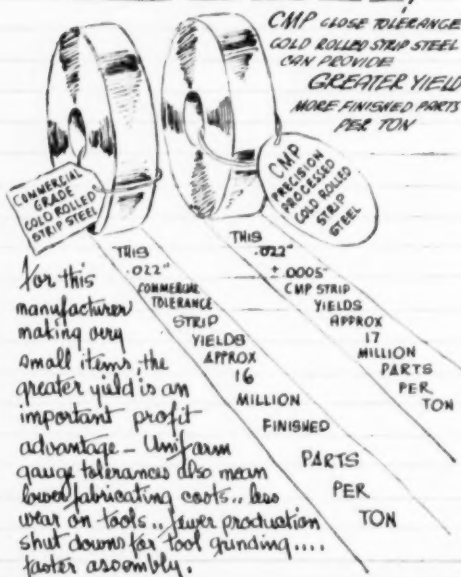 CMP CLOSE TOLERANCE
COLD ROLLED STRIP STEEL
CAN PROVIDE
GREATER YIELD
MORE FINISHED PARTS
PER TON
COMMERCIAL
GRADE
COLD ROLLED
STRIP STEEL
CMP
PRECISION
PROCESSED
COLD ROLLED
STRIP
STEEL
THIS
.022"
COMMERCIAL
TOLERANCE
STRIP
YIELDS
APPROX
16
MILLION
FINISHED
PARTS
PER
TON
THIS
.022"
± .0005"
CMP STRIP
YIELDS
APPROX
17
MILLION
PARTS
PER
TON
For this
manufacturer
making very
small items, the
greater yield is an
important profit
advantage - Uniform
gauge tolerances also mean
lower fabricating costs.. less
wear on tools.. fewer production
shut downs for tool grinding....
faster assembly.